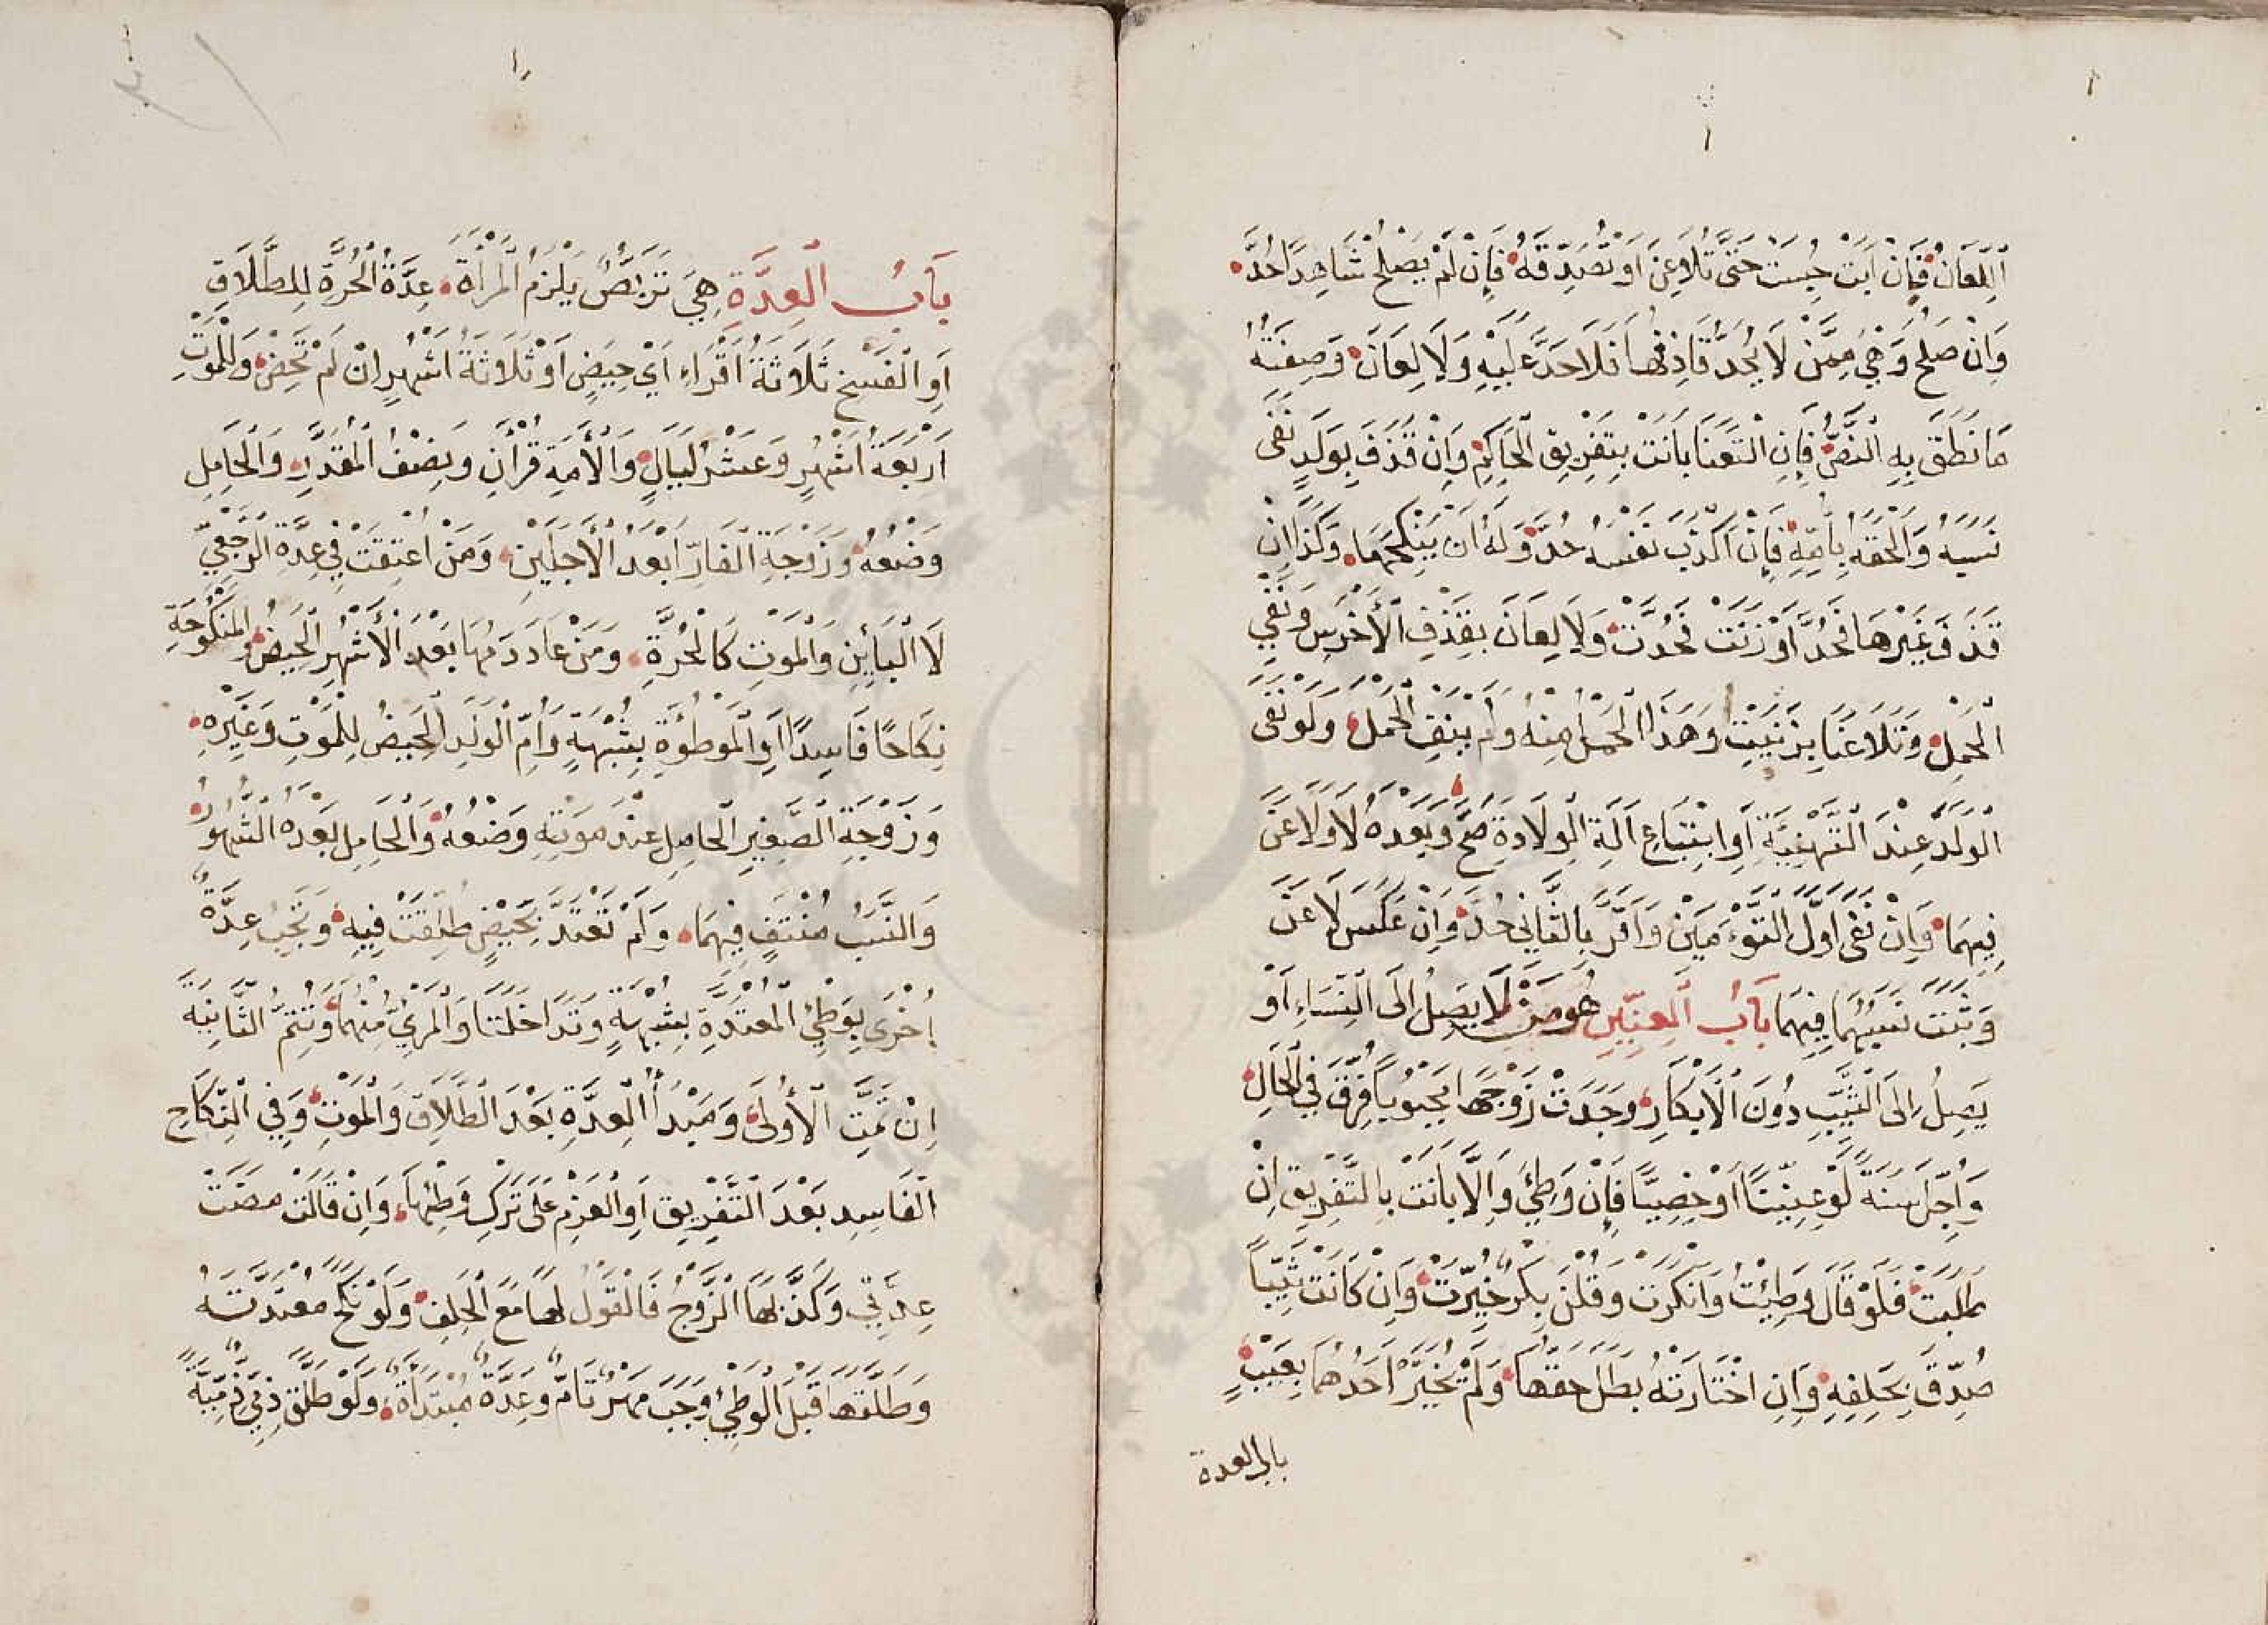 اَللِّعَانُ فَإِنْ اَبَتْ حُبِسَتْ حَتَّى تُلَاعِنَ اَوْ تُصَدِّقَهُ فَإِنْ لَمْ يَصْلُحْ شَاهِدًا حُدَّ
وَاِنْ صَلَحَ وَهِيَ مِمَّنْ لَا يُحَدُّ قَاذِفُهَا فَلَا حَدَّ عَلَيْهِ وَلَا لِعَانَ وَصِفَتُهُ
مَا نَطَقَ بِهِ النَّصُّ فَإِنِ الْتَعَنَا بَانَتْ بِتَفْرِيقِ الْحَاكِمِ وَاِنْ قَذَفَ بِوَلَدٍ نَفَى
نَسَبَهُ وَاَلْحَقَهُ بِأُمِّهِ فَإِنْ اَكْذَبَ نَفْسَهُ حُدَّ وَلَهُ اَنْ يَنْكِحَهَا وَكَذَا اِنْ
قَذَفَ غَيْرَهَا فَحُدَّ اَوْ زَنَتْ فَحُدَّتْ وَلَا لِعَانَ بِقَذْفِ الْأَخْرَسِ وَنَفْيِ
الْحَمْلِ وَتَلَاعَنَا بِزَنَيْتِ وَهَذَا الْحَمْلُ مِنْهُ وَلَمْ يَنْفِ الْحَمْلَ وَلَوْ نَفَى
الْوَلَدَ عِنْدَ التَّهْنِيَةِ اَوِ ابْتِيَاعِ آلَةِ الْوِلَادَةِ صَحَّ وَبَعْدَهُ لَا وَلَاعَنَ
فِيهِمَا وَاِنْ نَفَى اَوَّلَ التَّوْءَمَيْنِ وَاَقَرَّ بِالثَّانِي حُدَّ وَاِنْ عَكَسَ لَاعَنَ
وَثَبَتَ نَسَبُهُمَا فِيهِمَا بَابُ الْعِنِّينِ هُوَ مَنْ لَا يَصِلُ اِلَى النِّسَاءِ اَوْ
يَصِلُ اِلَى الثَّيِّبِ دُونَ الْأَبْكَارِ وَجَدَتْ زَوْجَهَا مَجْبُوبًا فُرِّقَ فِي الْحَالِ
وَاُجِّلَ سَنَةً لَوْ عِنِّينًا اَوْ خَصِيًّا فَإِنْ وَطِئَ وَاِلَّا بَانَتْ بِالتَّفْرِيقِ اِنْ
طَلَبَتْ فَلَوْ قَالَ وَطِئْتُ وَاَنْكَرَتْ وَقُلْنَ بِكْرٌ خُيِّرَتْ وَاِنْ كَانَتْ ثَيِّبًا
صُدِّقَ بِحَلِفِهِ وَاِنِ اخْتَارَتْهُ بَطَلَ حَقُّهَا وَلَمْ يُخَيَّرْ اَحَدُهُمَا بِعَيْبٍ
باب العدة
بَابُ الْعِدَّةِ هِيَ تَرَبُّصٌ يَلْزَمُ الْمَرْأَةَ عِدَّةُ الْحُرَّةِ لِلطَّلَاقِ
اَوِ الْفَسْخِ ثَلَاثَةُ اَقْرَاءٍ اَيْ حِيَضٍ اَوْ ثَلَاثَةُ اَشْهُرٍ اِنْ لَمْ تَحِضْ وَلِلْمَوْتِ
اَرْبَعَةُ اَشْهُرٍ وَعَشْرُ لَيَالٍ وَالْأَمَةِ قُرْأَنِ وَنِصْفُ الْمُقَدَّرِ وَالْحَامِلِ
وَضْعُهُ وَزَوْجَةِ الْفَارِّ اَبْعَدُ الْأَجَلَيْنِ وَمَنْ اُعْتِقَتْ فِي عِدَّةِ الرَّجْعِيِّ
لَا الْبَائِنِ وَالْمَوْتِ كَالْحُرَّةِ وَمَنْ عَادَ دَمُهَا بَعْدَ الْأَشْهُرِ الْحِيَضُ وَالْمَنْكُوحَةِ
نِكَاحًا فَاسِدًا اَوِ الْمَوْطُوءَةِ بِشُبْهَةٍ وَاُمِّ الْوَلَدِ الْحِيَضُ لِلْمَوْتِ وَغَيْرِهِ
وَزَوْجَةِ الصَّغِيرِ الْحَامِلِ عِنْدَ مَوْتِهِ وَضْعُهُ وَالْحَامِلِ بَعْدَهُ الشُّهُورُ
وَالنَّسَبُ مُنْتَفٍ فِيهِمَا وَلَمْ تَعْتَدَّ بِحَيْضٍ طُلِّقَتْ فِيهِ وَتَجِبُ عِدَّةٌ
اُخْرَى بِوَطْئِ الْمُعْتَدَّةِ بِشُبْهَةٍ وَتَدَاخَلَتَا وَالْمَرْئِيُّ مِنْهُمَا وَتُتِمُّ الثَّانِيَةَ
اِنْ تَمَّتِ الْأُولَى وَمَبْدَأُ الْعِدَّةِ بَعْدَ الطَّلَاقِ وَالْمَوْتِ وَفِي النِّكَاحِ
الْفَاسِدِ بَعْدَ التَّفْرِيقِ اَوِ الْعَزْمِ عَلَى تَرْكِ وَطْئِهَا وَاِنْ قَالَتْ مَضَتْ
عِدَّتِي وَكَذَّبَهَا الزَّوْجُ فَالْقَوْلُ لَهَا مَعَ الْحَلِفِ وَلَوْ نَكَحَ مُعْتَدَّتَهُ
وَطَلَّقَهَا قَبْلَ الْوَطْئِ وَجَبَ مَهْرٌ تَامٌّ وَعِدَّةٌ مُبْتَدَأَةٌ وَلَوْ طَلَّقَ ذِمِّيٌّ ذِمِّيَّةً